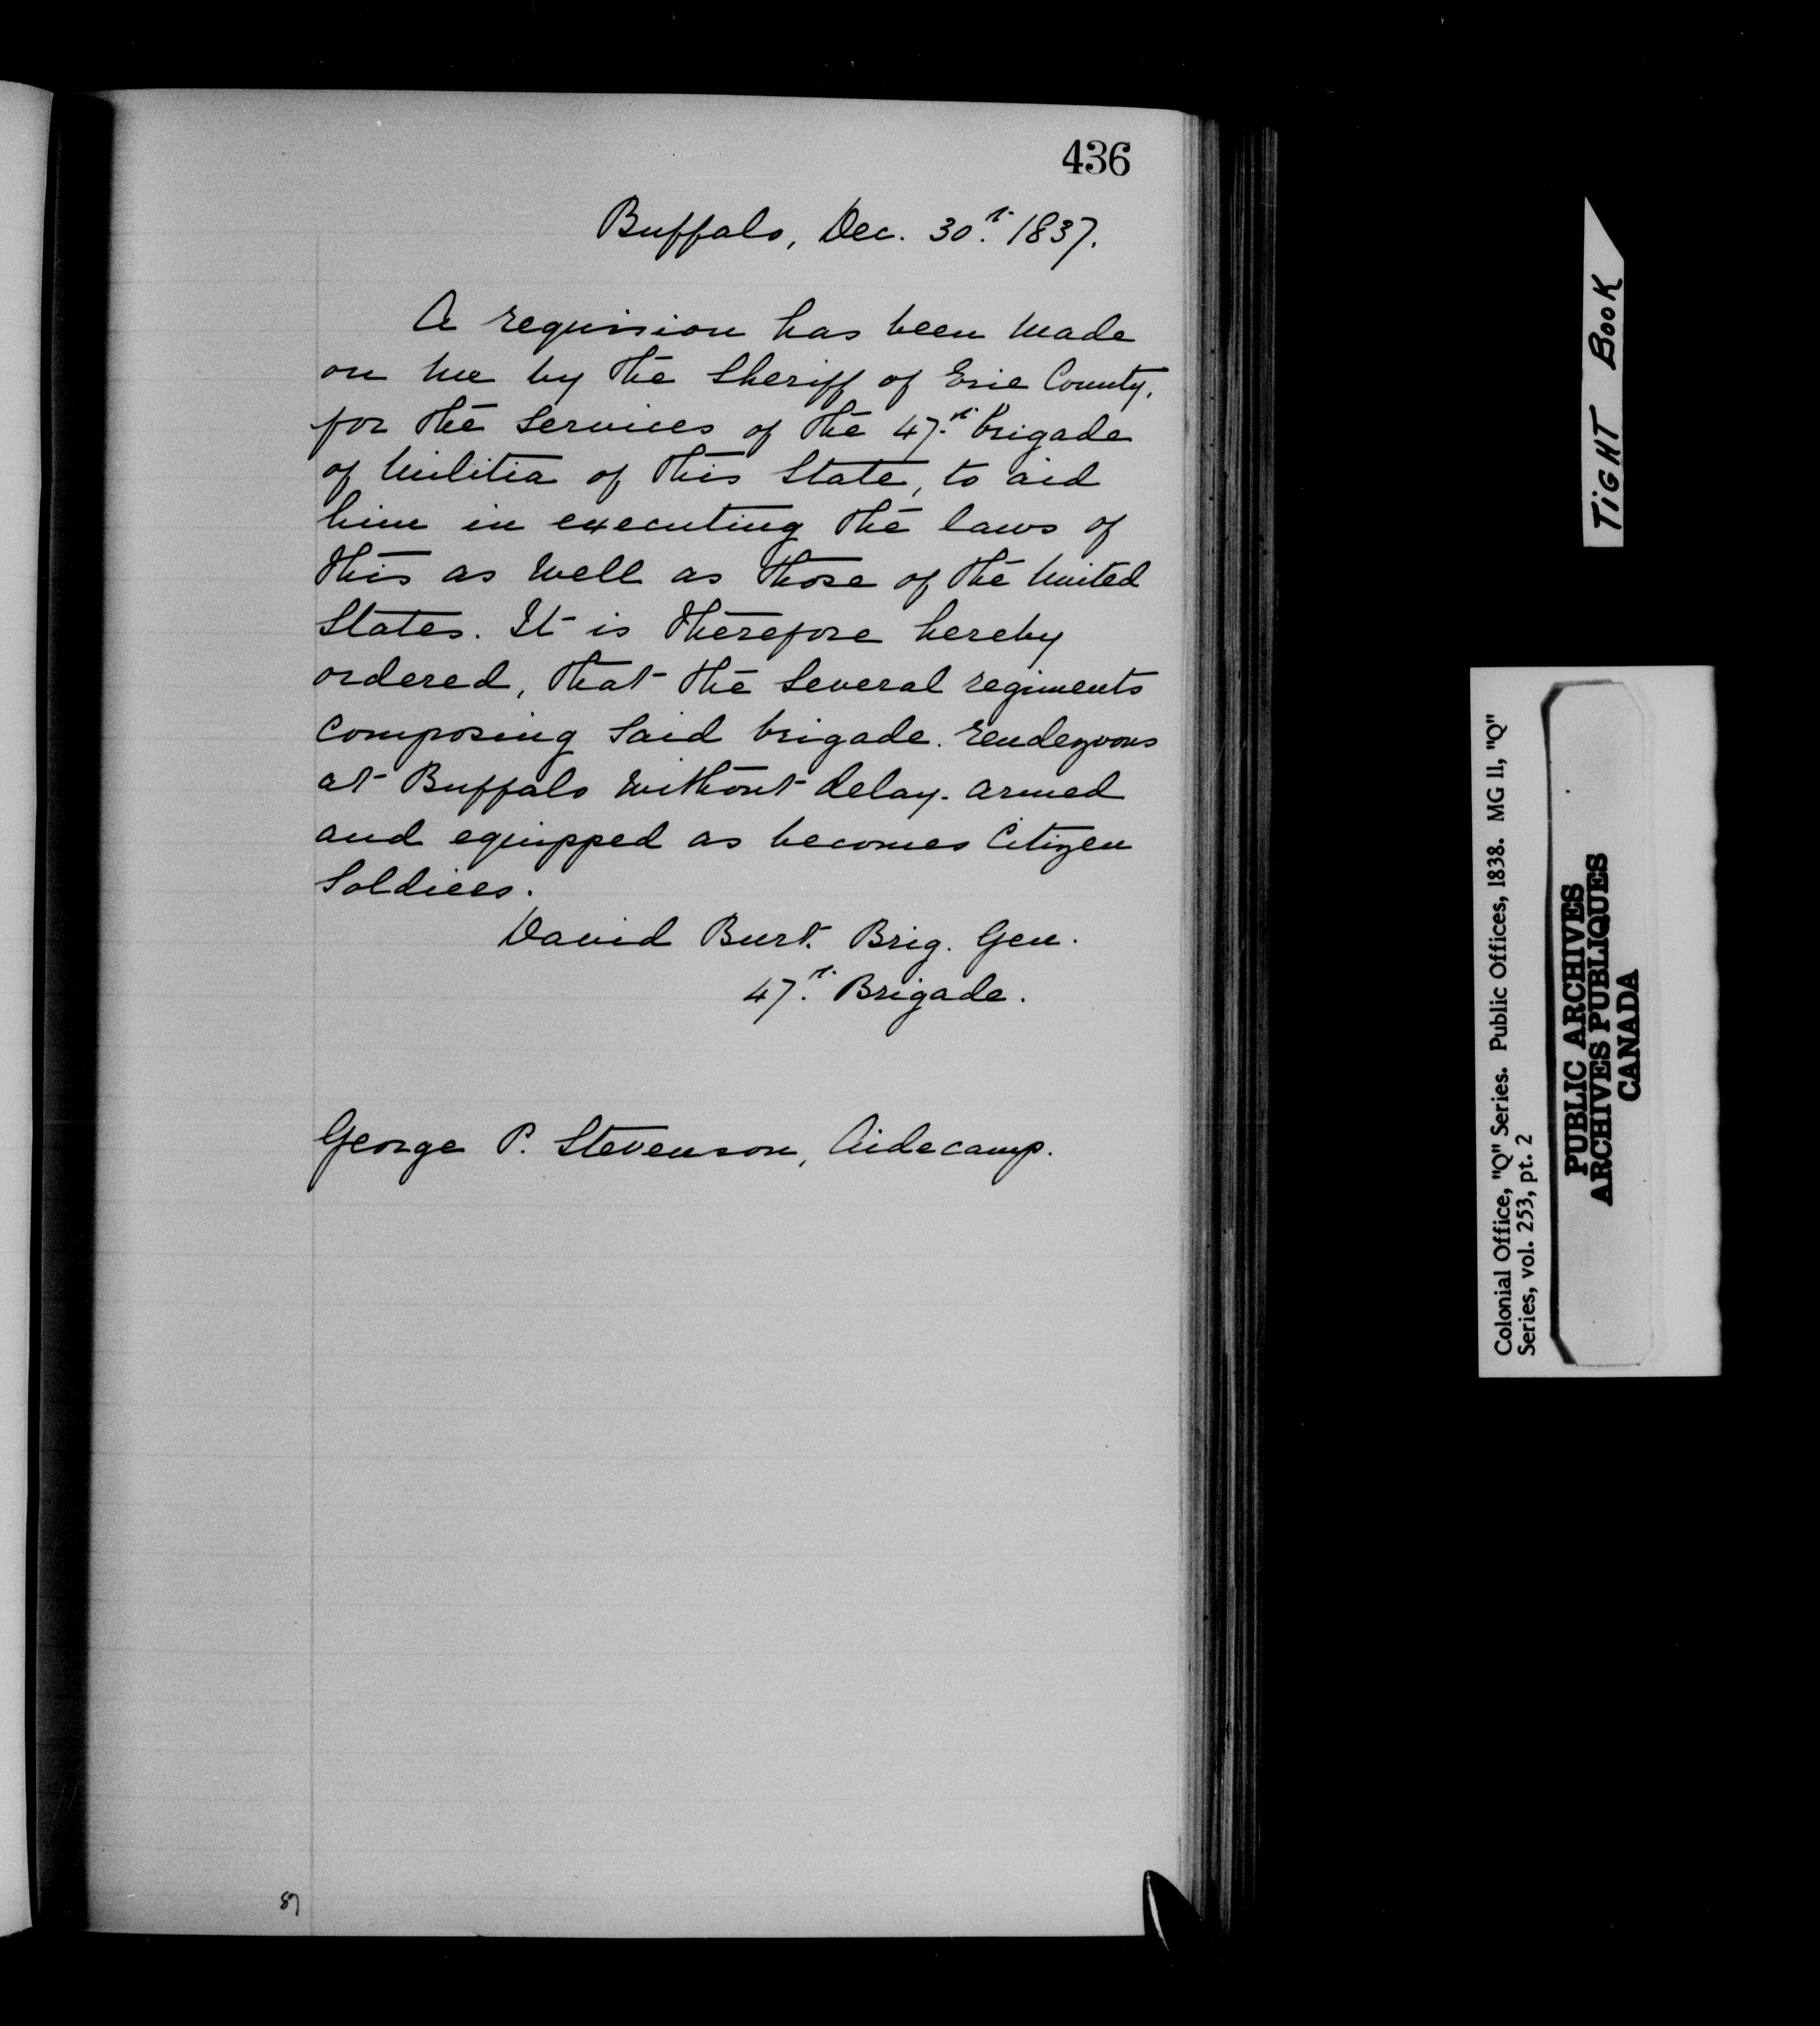 436
Buffalo, Dec. 30th. 1837.
A requision has been made
on me by the Sheriff of Erie County,
for the services of the 47th. brigade
of Militia of this State, to aid
him in executing the laws of
this as well as those of the United
States. It is therefore hereby
ordered, that the several regiments
composing said brigade. rendezvous
at Buffalo without delay. armed
and equipped as becomes Citizen
Soldiers.
David Burt. Brig. Gen.
47th. Brigade.
George P. Stevenson, Aidecamp.
87
TIGHT BOOK
Colonial Office, "Q" Series. Public Offices, 1838. MG 11, "Q"
Series, vol. 253, pt. 2
PUBLIC ARCHIVES
ARCHIVES PUBLIQUES
CANADA